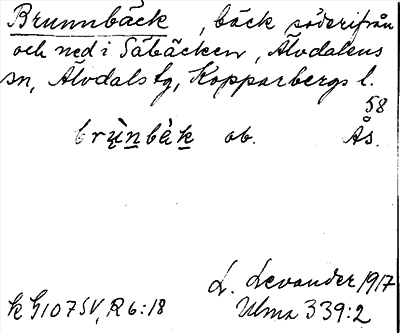 Brunnbäck, bäck söderifrån
och ned i Såbäcken, Älvdalens
sn, Älvdals tg, Kopparbergs l.
58
brùnbàk ob. Ås.
L. Levander 1917
k G107SV, R6:18 Ulma 339:2